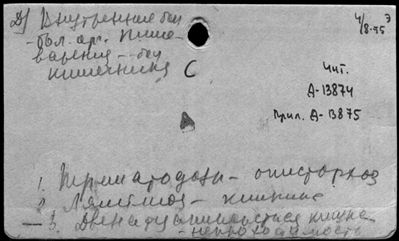 Д) Внутренние бол
-бол. орг. пище-
варения - бол
кишечника
С
4/8-95
Э
Чит.
А-13874
Прил. А-13875
1. Трематодозы - описторхоз
2. Лямблиоз - кишечн
3. Двенадцатиперстная кишка
- непроходимость